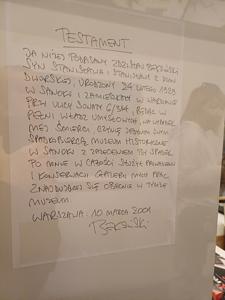 TESTAMENT
JA NIŻEJ PODPISANY ZDZISŁAW BEKSIŃSKI
SYN STANISŁAWA I STANISŁAWY Z DOMU
DWORSKIEJ, URODZONY 24 LUTEGO 1929
W SANOKU I ZAMIESZKAŁY W WARSZAWIE
PRZY ULICY SONATY 6/314, BĘDĄC W
PEŁNI WŁADZ UMYSŁOWYCH, NA WYPADEK
MEJ ŚMIERCI, CZYNIĘ JEDYNYM MYM
SPADKOBIERCĄ MUZEUM HISTORYCZNE
W SANOKU Z ZALECENIEM BY SPADEK
PO MNIE W CAŁOŚCI SŁUŻYŁ
I KONSERWACJI GALERII MYCH PRAC
ZNAJDUJĄCEJ SIĘ OBECNIE W TYMŻE
MUZEUM.
WARSZAWA 10 MARCA 2001
BEKSIŃSKI